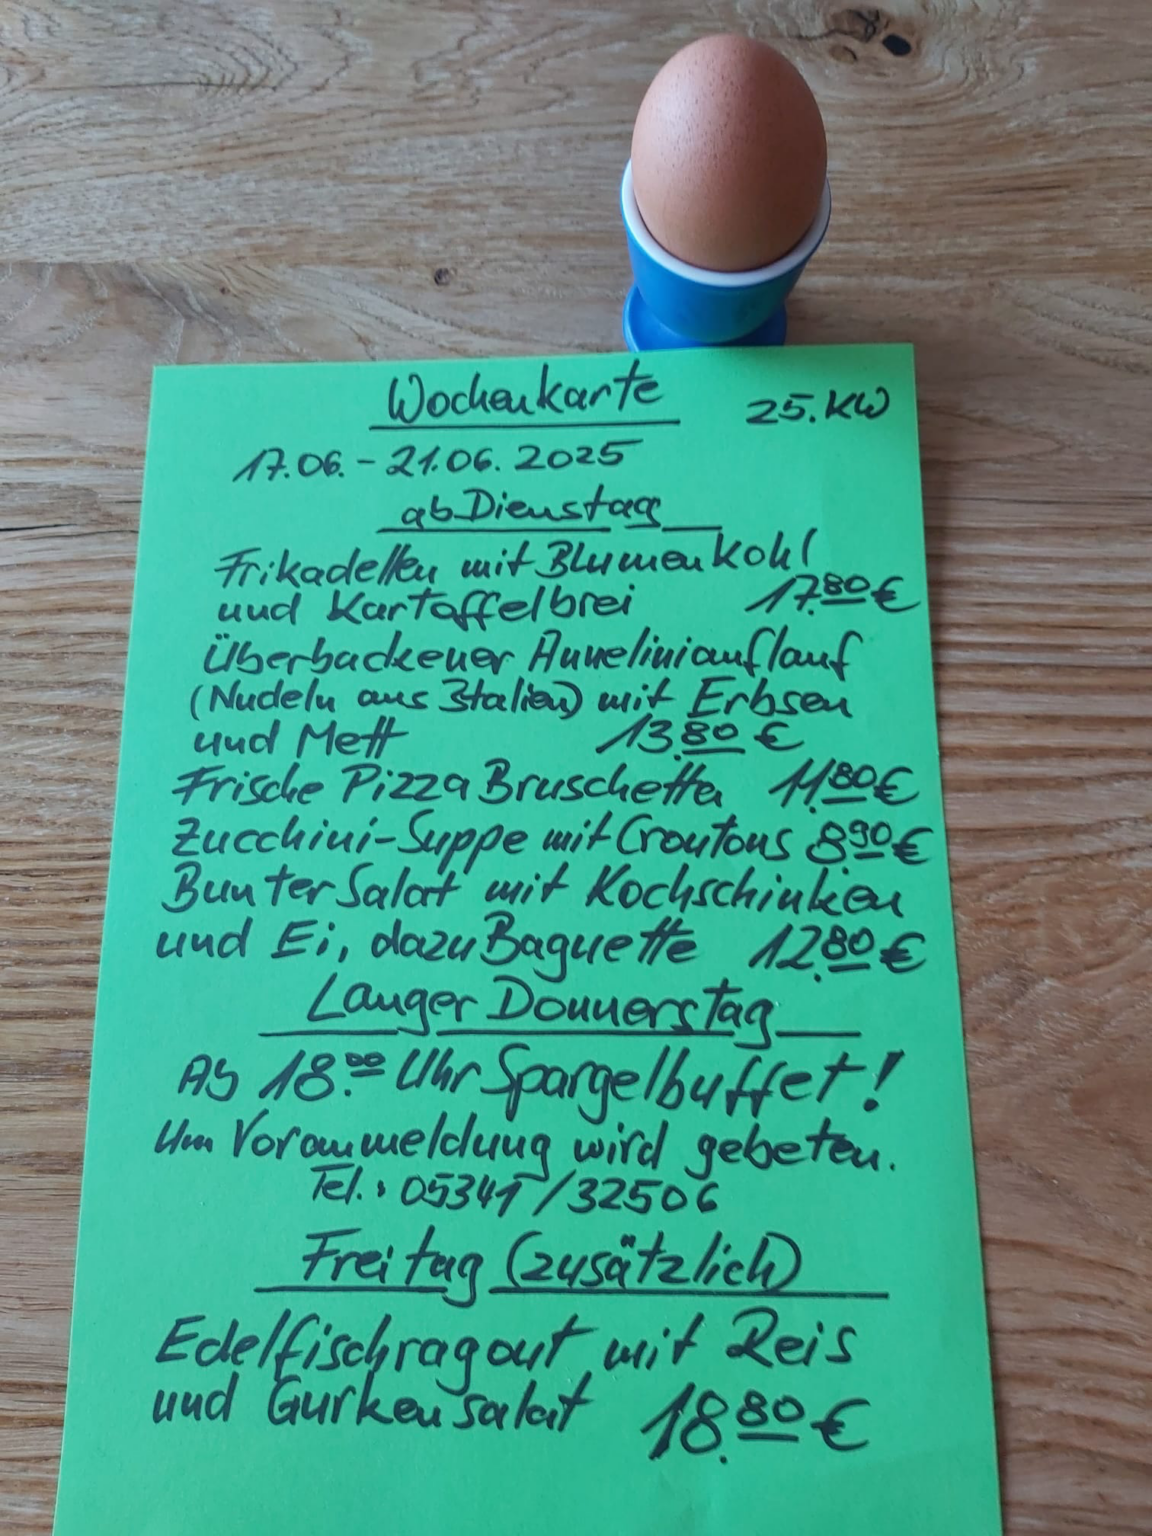 Wochenkarte
25. KW
17.06. - 21.06. 2025
ab Dienstag
Frikadellen mit Blumenkohl
und Kartoffelbrei 17.80 €
Überbackener Annelliniauflauf
(Nudeln aus Italien) mit Erbsen
und Mett 13.80 €
Frische Pizza Bruschetta 11.80 €
Zucchini-Suppe mit Croutons 8.90 €
Bunter Salat mit Kochschinken
und Ei, dazu Baguette 12.80 €
Langer Donnerstag
Ab 18.00 Uhr Spargelbuffet!
Um Voranmeldung wird gebeten.
Tel.: 05341/32506
Freitag (zusätzlich)
Edelfischragout mit Reis
und Gurkensalat 18.80 €